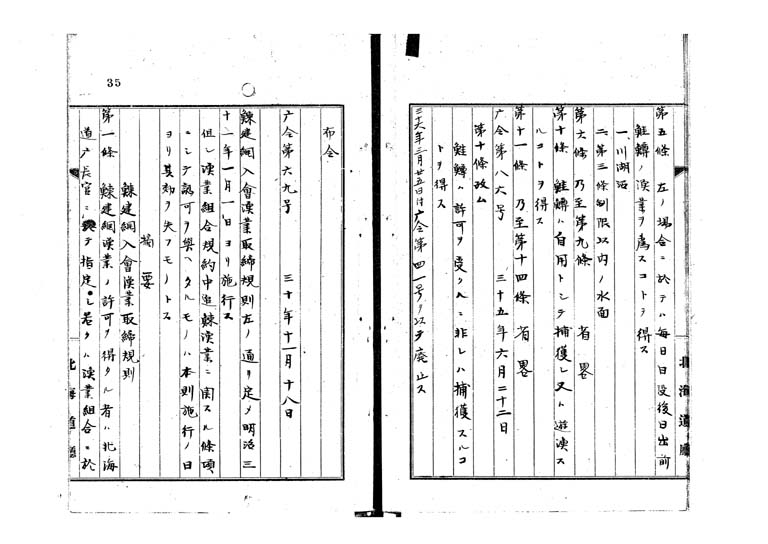 第五條 左ノ場合ニ於テハ毎日日没後日出前
鮭鱒ノ漁業ヲ爲スコトヲ得ス
一、川湖沼
二、第三條制限以内ノ水面
第六條 乃至第九條 省畧
第十條 鮭鱒ハ自用トシテ捕獲シ又ハ遊漁ス
ルコトヲ得ス
第十一條 乃至第十四條 省畧
广令第八六号 三十五年六月二十二日
第十條改ム
鮭鱒ハ許可ヲ受クルニ非レハ捕獲スルコ
トヲ得ス
三十六年三月廿五日付广令第四一号ヲ以テ廃止ス
北海道廳
35
布令
广令第六九号 三十年十一月十八日
鰊建網入會漁業取締規則左ノ通リ定メ明治三
十一年一月一日ヨリ施行ス
但シ漁業組合規約中鰊漁業ニ関スル條項
ニシテ認可ヲ與ヘタルモノハ本則施行ノ日
ヨリ其効ヲ失フモノトス
摘要
鰊建網入會漁業取締規則
第一條 鰊建網漁業ノ許可ヲ得タル者ハ北海
道广長官ニ テ指定シ若クハ漁業組合ニ於
北海道廳